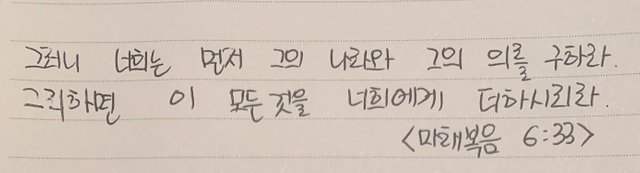 그러니 너희는 먼저 그의 나라와 그의 의를 구하라.
그리하면 이 모든 것을 너희에게 더하시리라.
<마태복음 6:33>